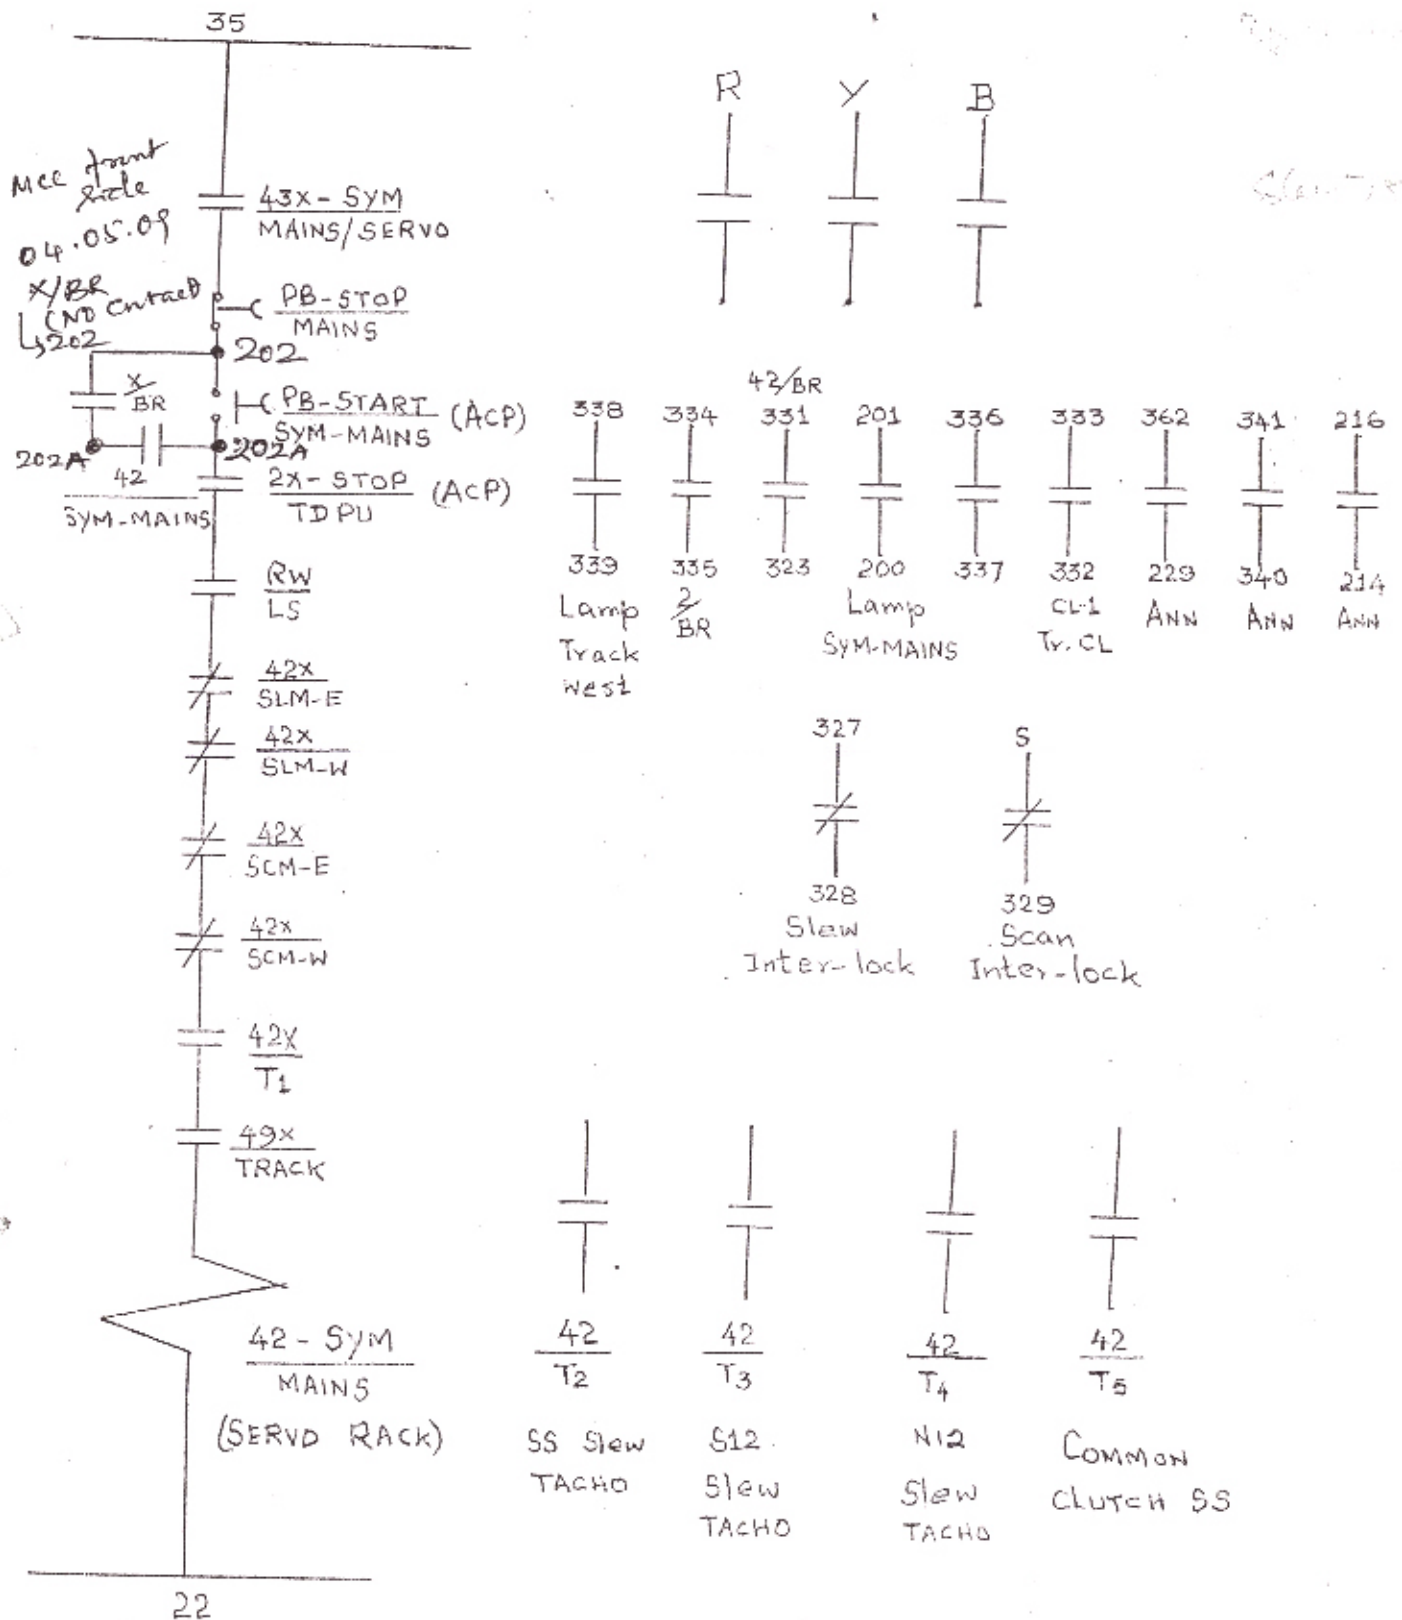 35
R Y B
MCC front
side
04.05.09
X/BR
(NO Contact)
202
43X - SYM
MAINS/SERVO
PB-STOP
MAINS
202
X
BR
PB-START (ACP)
SYM-MAINS
202A
202A
42
SYM-MAINS
2X - STOP (ACP)
TDPU
RW
LS
42X
SLM-E
42X
SLM-W
42X
SCM-E
42X
SCM-W
42X
T1
49X
TRACK
42 - SYM
MAINS
(SERVO RACK)
22
42/BR
338 334 331 201 336 333 362 341 216
339 335 323 200 337 332 229 340 214
Lamp
Track
West
2
BR
Lamp
SYM-MAINS
CL-1
Tr. CL
ANN
ANN
ANN
327
328
Slew
Inter-lock
S
329
Scan
Inter-lock
42
T2
SS Slew
TACHO
42
T3
S12
Slew
TACHO
42
T4
N12
Slew
TACHO
42
T5
COMMON
CLUTCH SS